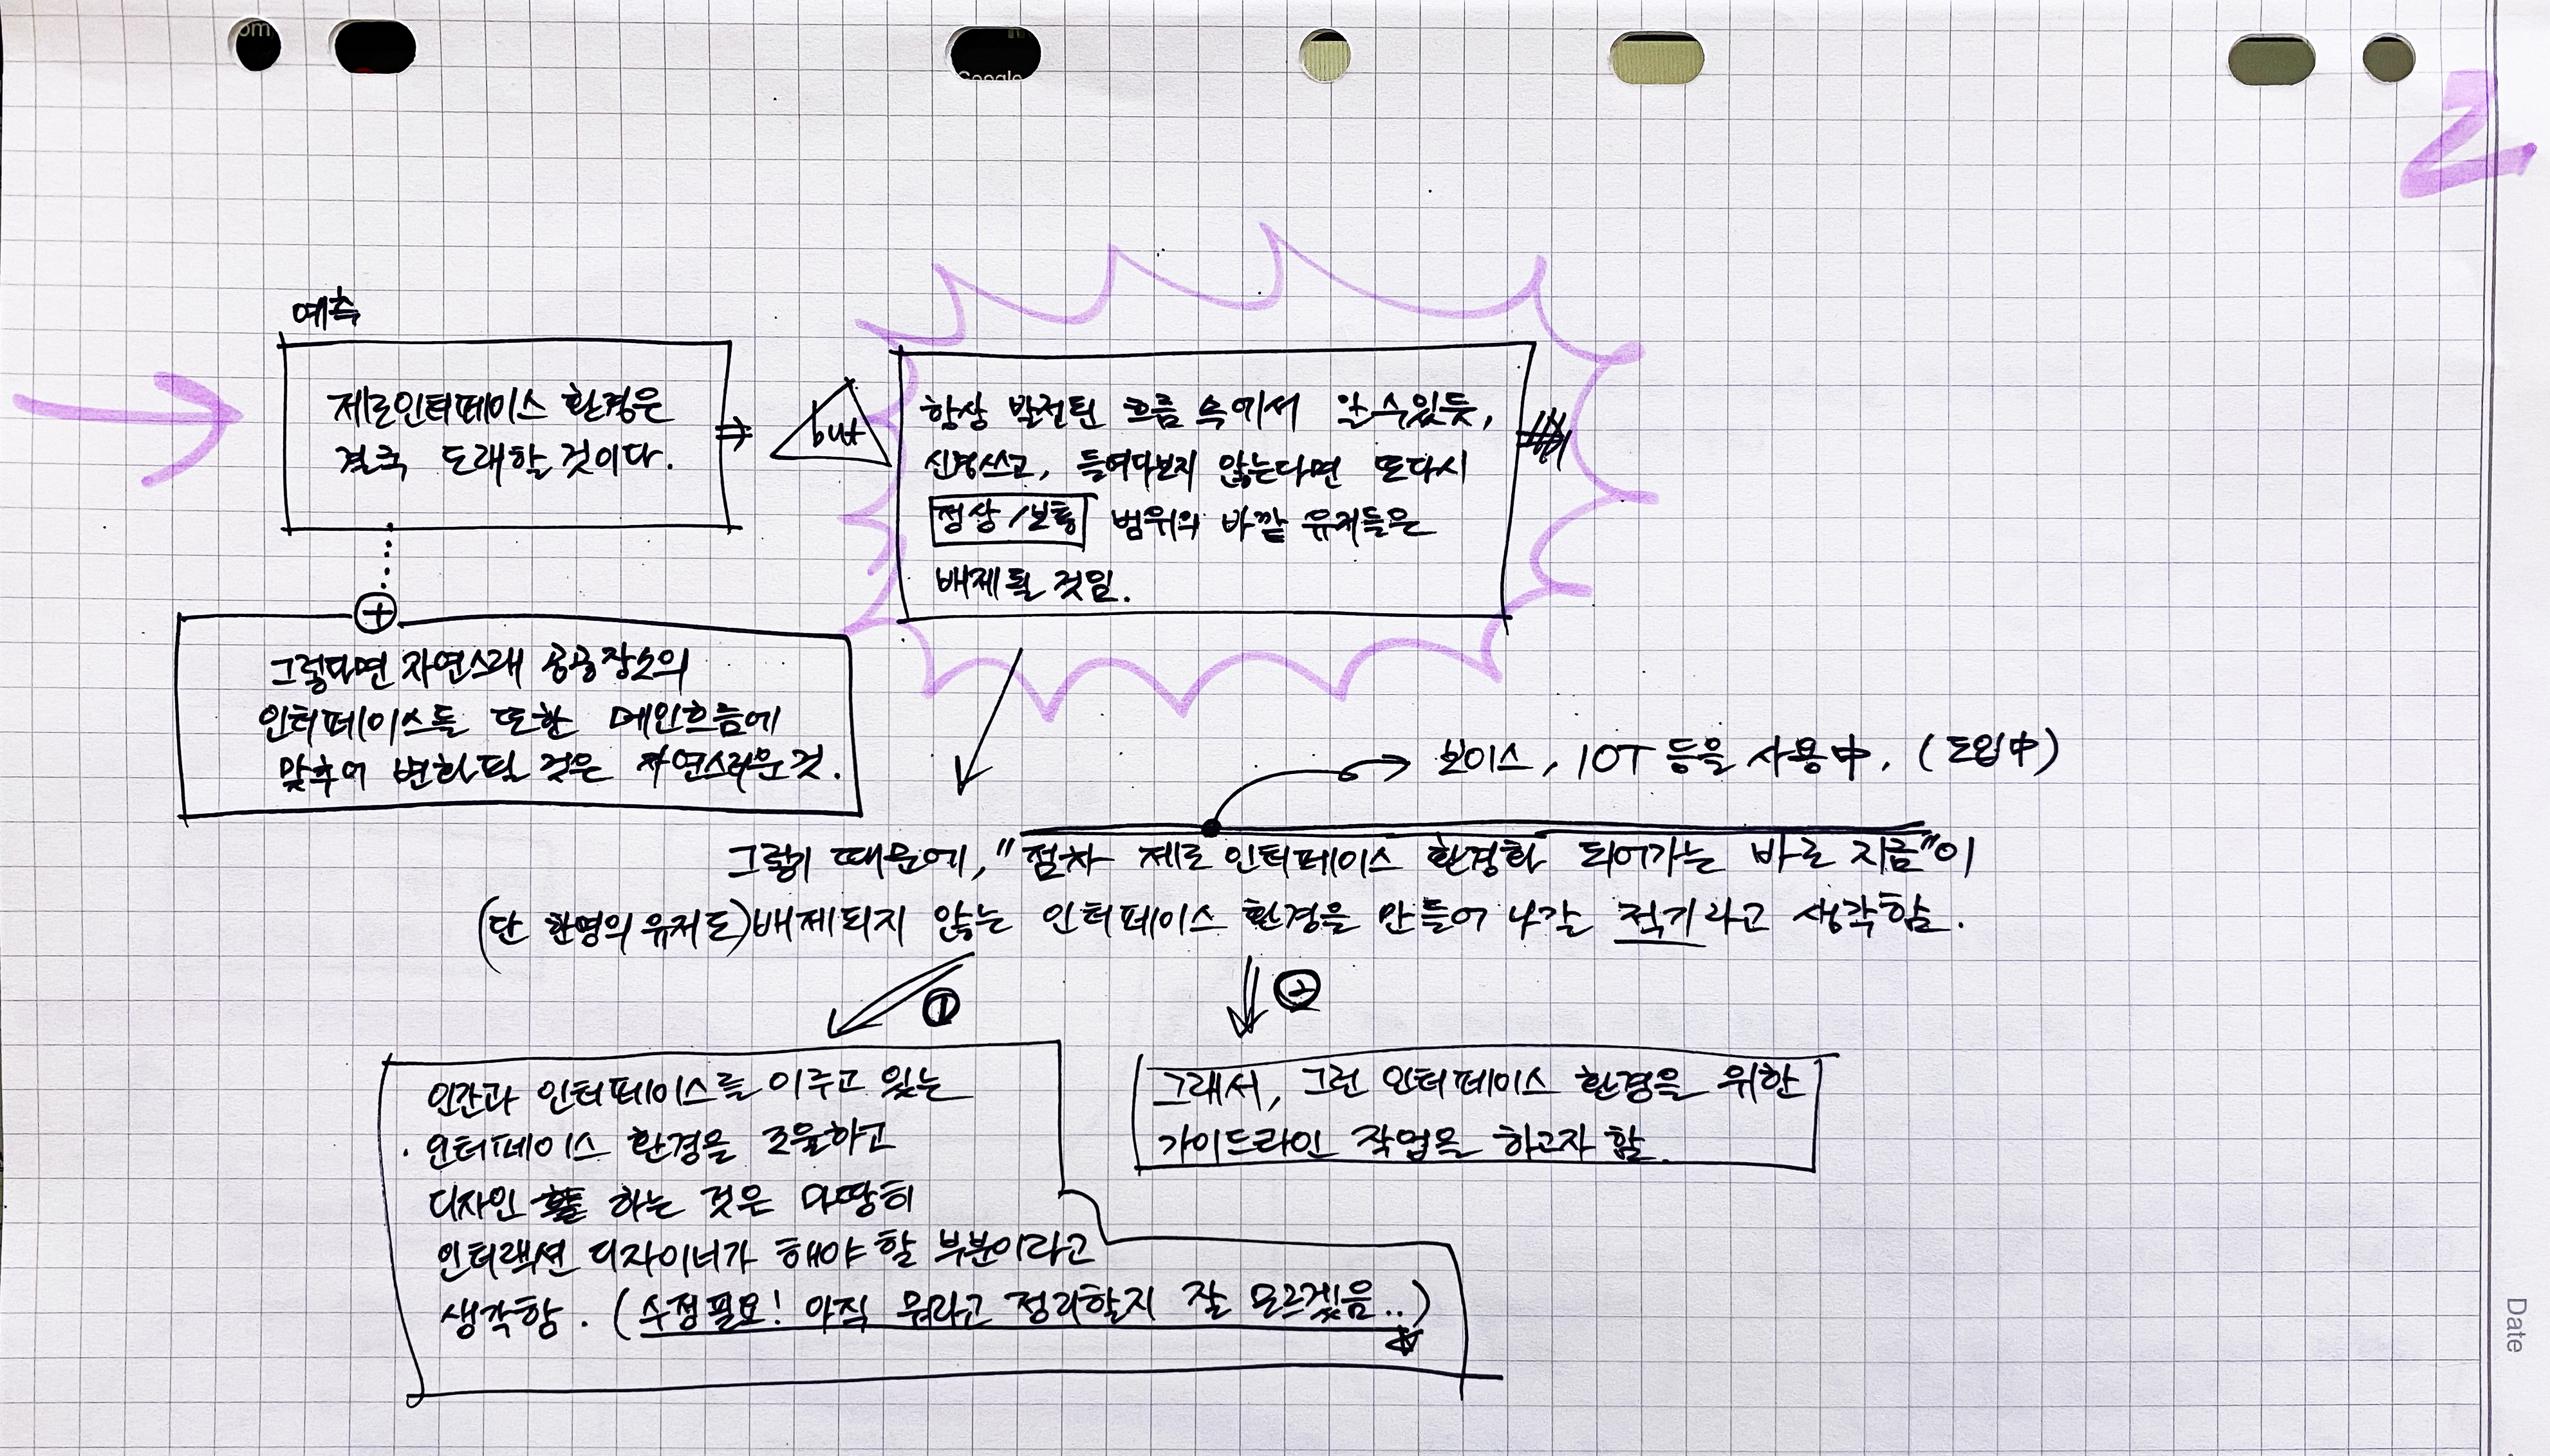 2
예측
제로인터페이스 환경은
결국 도래할 것이다.
but
항상 발전된 흐름 속에서 알 수 있듯,
신경쓰고, 들여다보지 않는다면 또다시
정상/보통 범위의 바깥 유저들은
배제될 것임.
그렇다면 자연스레 공공장소의
인터페이스들 또한 메인흐름에
맞추어 변화될 것은 자연스러운 것.
보이스, IOT 등을 사용中. (도입中)
그렇기 때문에, "점차 제로 인터페이스 환경화 되어가는 바로 지금"이
(단 한명의 유저도) 배제되지 않는 인터페이스 환경을 만들어 나갈 적기라고 생각함.
①
②
인간과 인터페이스를 이루고 있는
인터페이스 환경을 조율하고
디자인 하는 것은 마땅히
인터랙션 디자이너가 해야 할 부분이라고
생각함. (수정필요! 아직 뭐라고 정리할지 잘 모르겠음..)
그래서, 그런 인터페이스 환경을 위한
가이드라인 작업을 하고자 함.
Date
Google
om